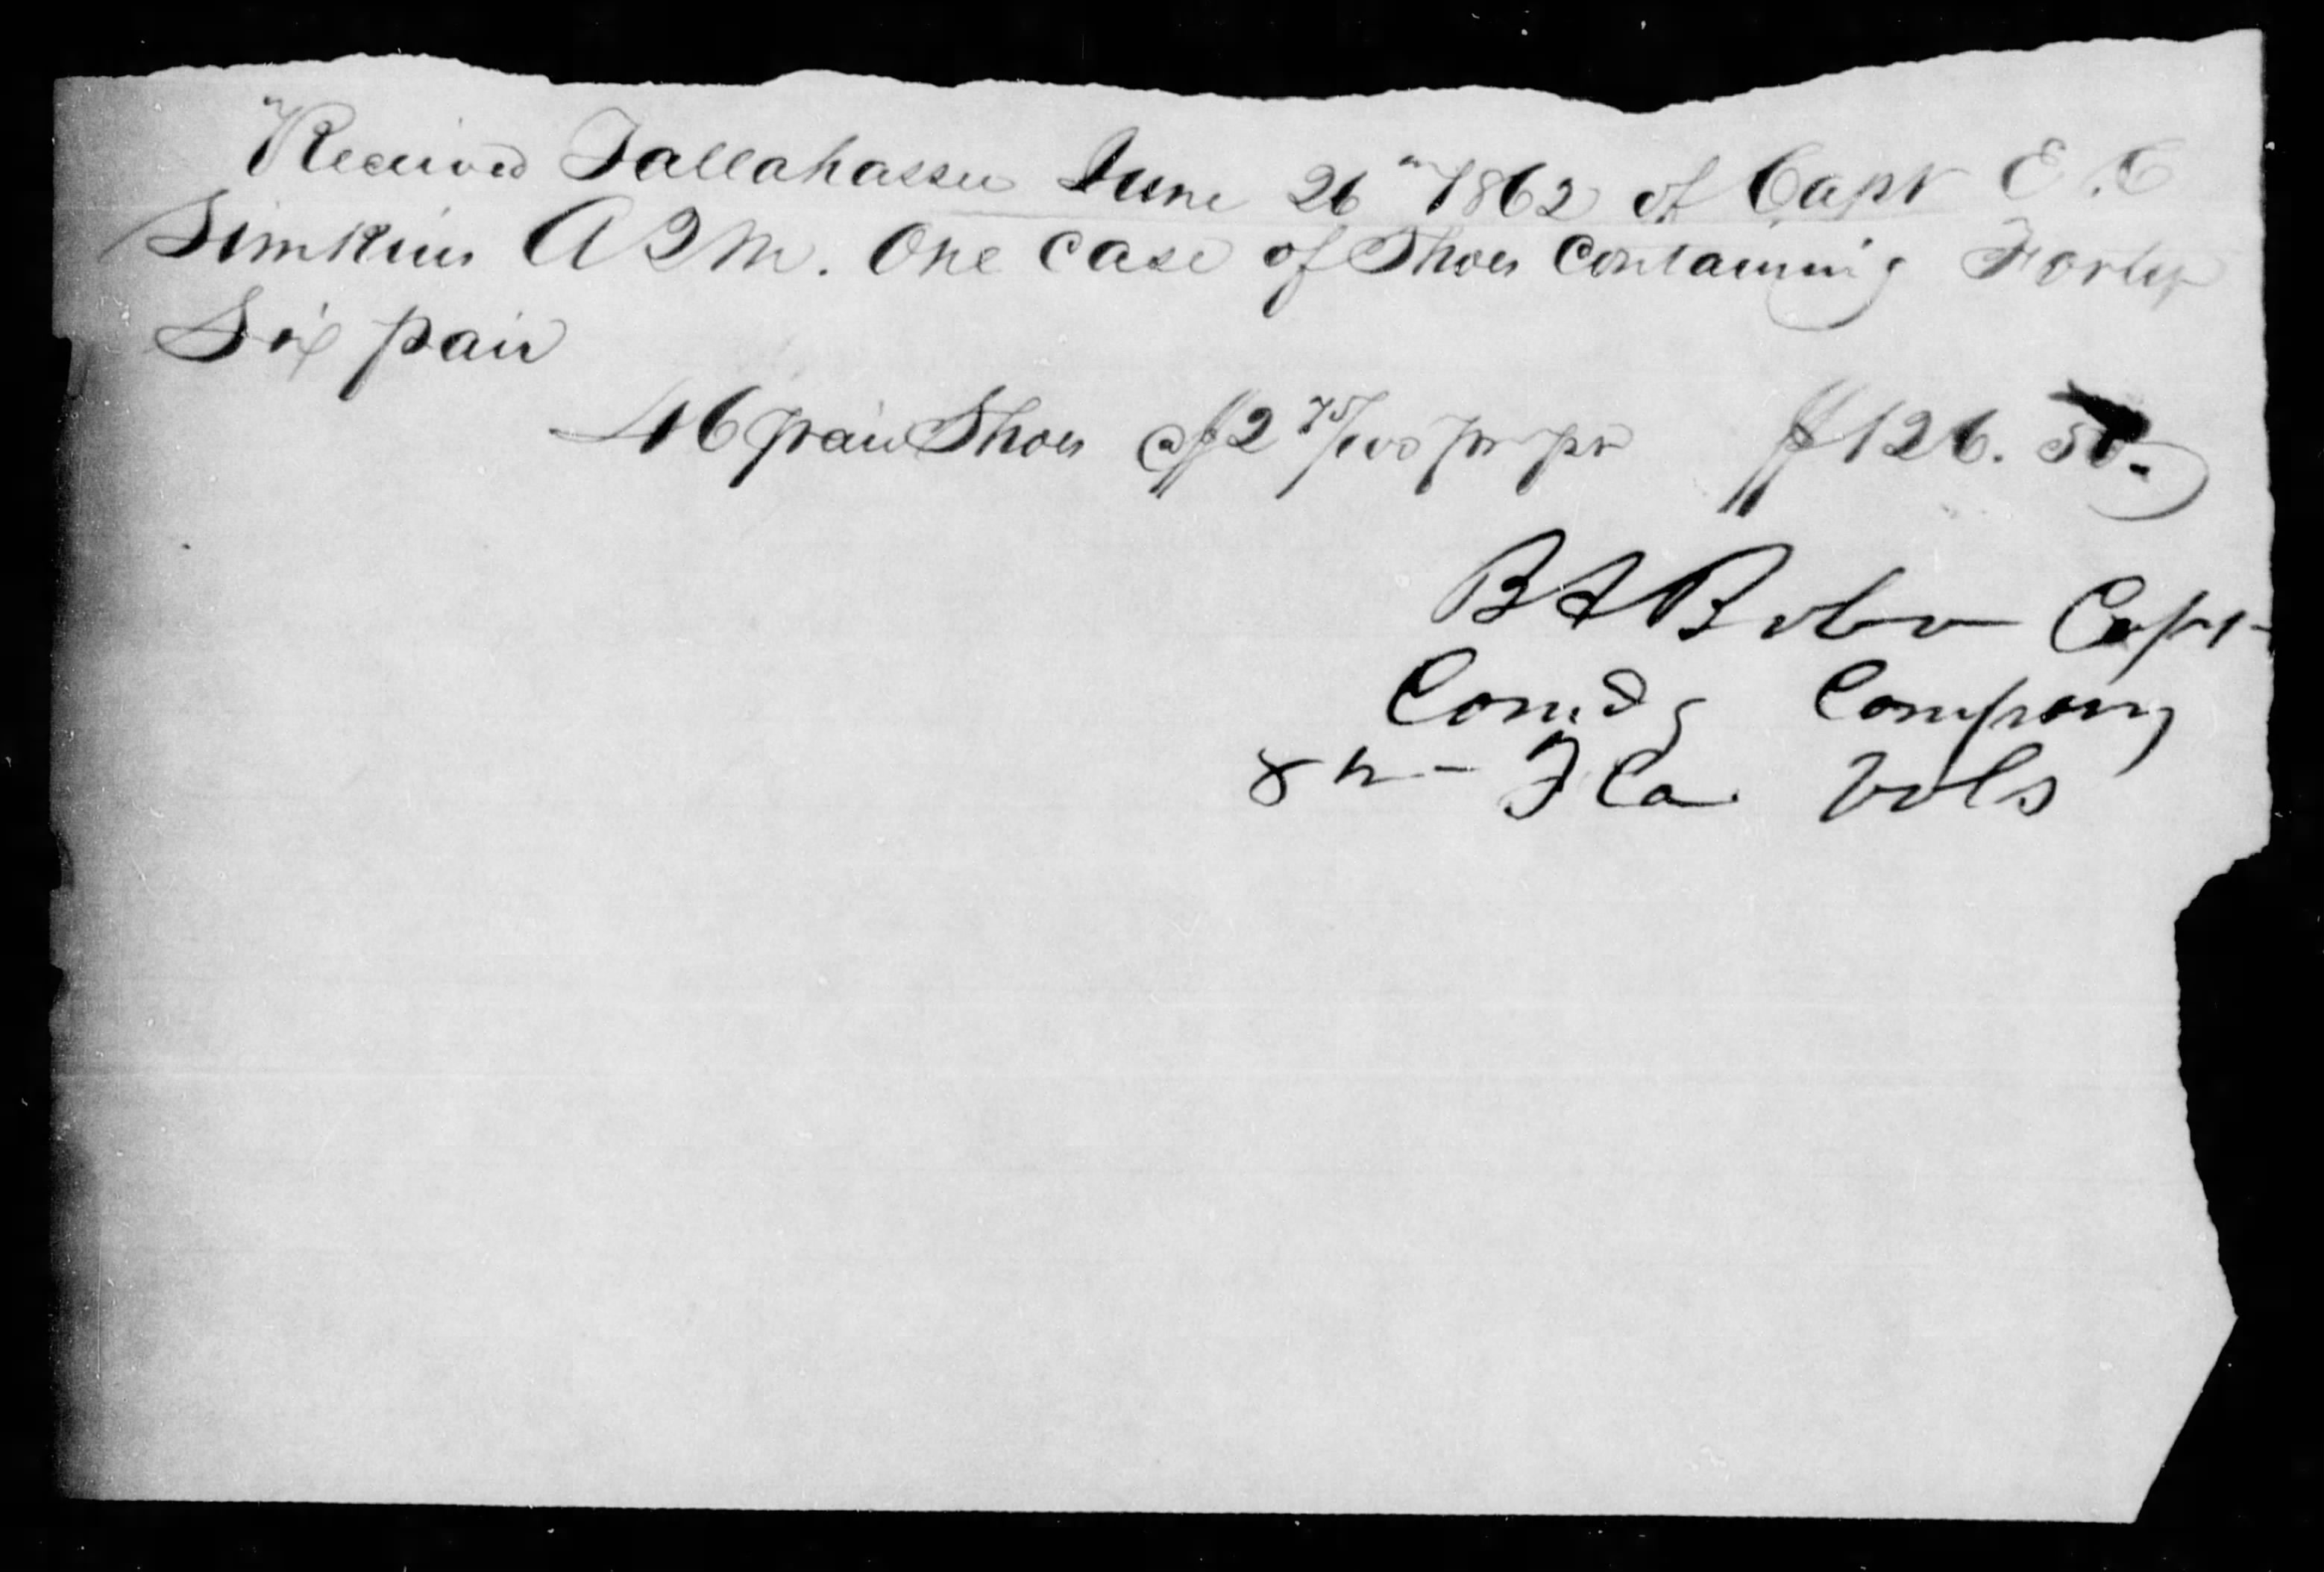 Received Tallahassee June 26th 1862 of Capt E. C
Simkins A Q M. One case of Shoes containing Forty
Six pair
46 pair Shoes @ $2 75/100 pr pr $126.50.
B F Bobo Capt
Comdg Company
8th Fla. Vols